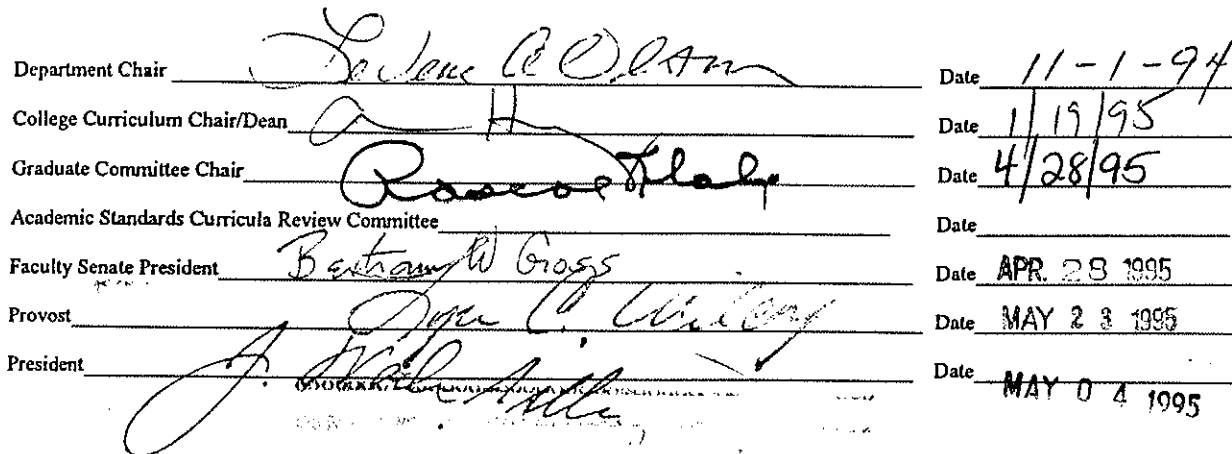 Department Chair Date 11-1-94
College Curriculum Chair/Dean Date 1/19/95
Graduate Committee Chair Roscoe Date 4/28/95
Academic Standards Curricula Review Committee Date
Faculty Senate President Bertram W Gross Date APR. 28 1995
Provost C. Date MAY 23 1995
President J. Date MAY 04 1995